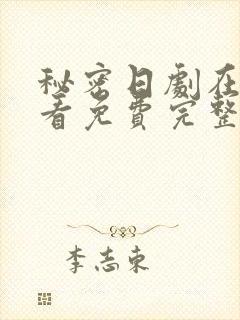 秘密日劇在
看免費完整
李志東